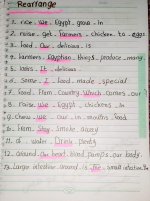 Rearrange
1. rice. We. Egypt. grow. in
2. raise. get. farmers. chicken. to. eggs
3. food. Our. delicious. is
4. farmers. Egyptian. things. produce. many
5. looks. It. delicious.
6. Some. I. food. made. special
7. food. From. Country. Which. comes. our
8. Raise. We. Egypt. chickens. in
9. Chew. We. our. in. mouths. food
10. from. Stay. smoke. away
11. of. water. Drink. plenty
12. around. Our heart. blood. pumps. our. body.
13. Large intestine. around. is. the. small intestine. The